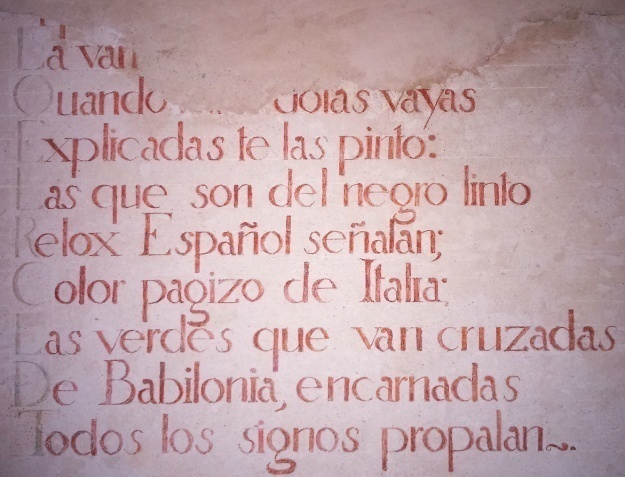 La van
Quando vayas
Explicadas te las pinto:
Las que son del negro tinto
Relox Español señalan;
Color pagizo de Italia:
Las verdes que van cruzadas
De Babilonia, encarnadas
Todos los signos propalan~.